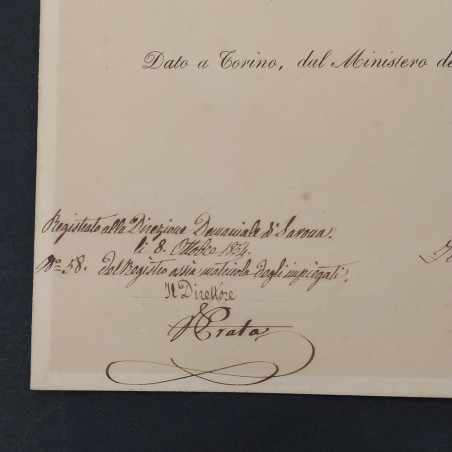 Dato a Torino, dal Ministero de
Registrato alla Direzione Demaniale di Savona.
li 8. Ottobre 1854.
N.º 58. del Registro assia matricola degli impiegati.
Il Direttore
Prato